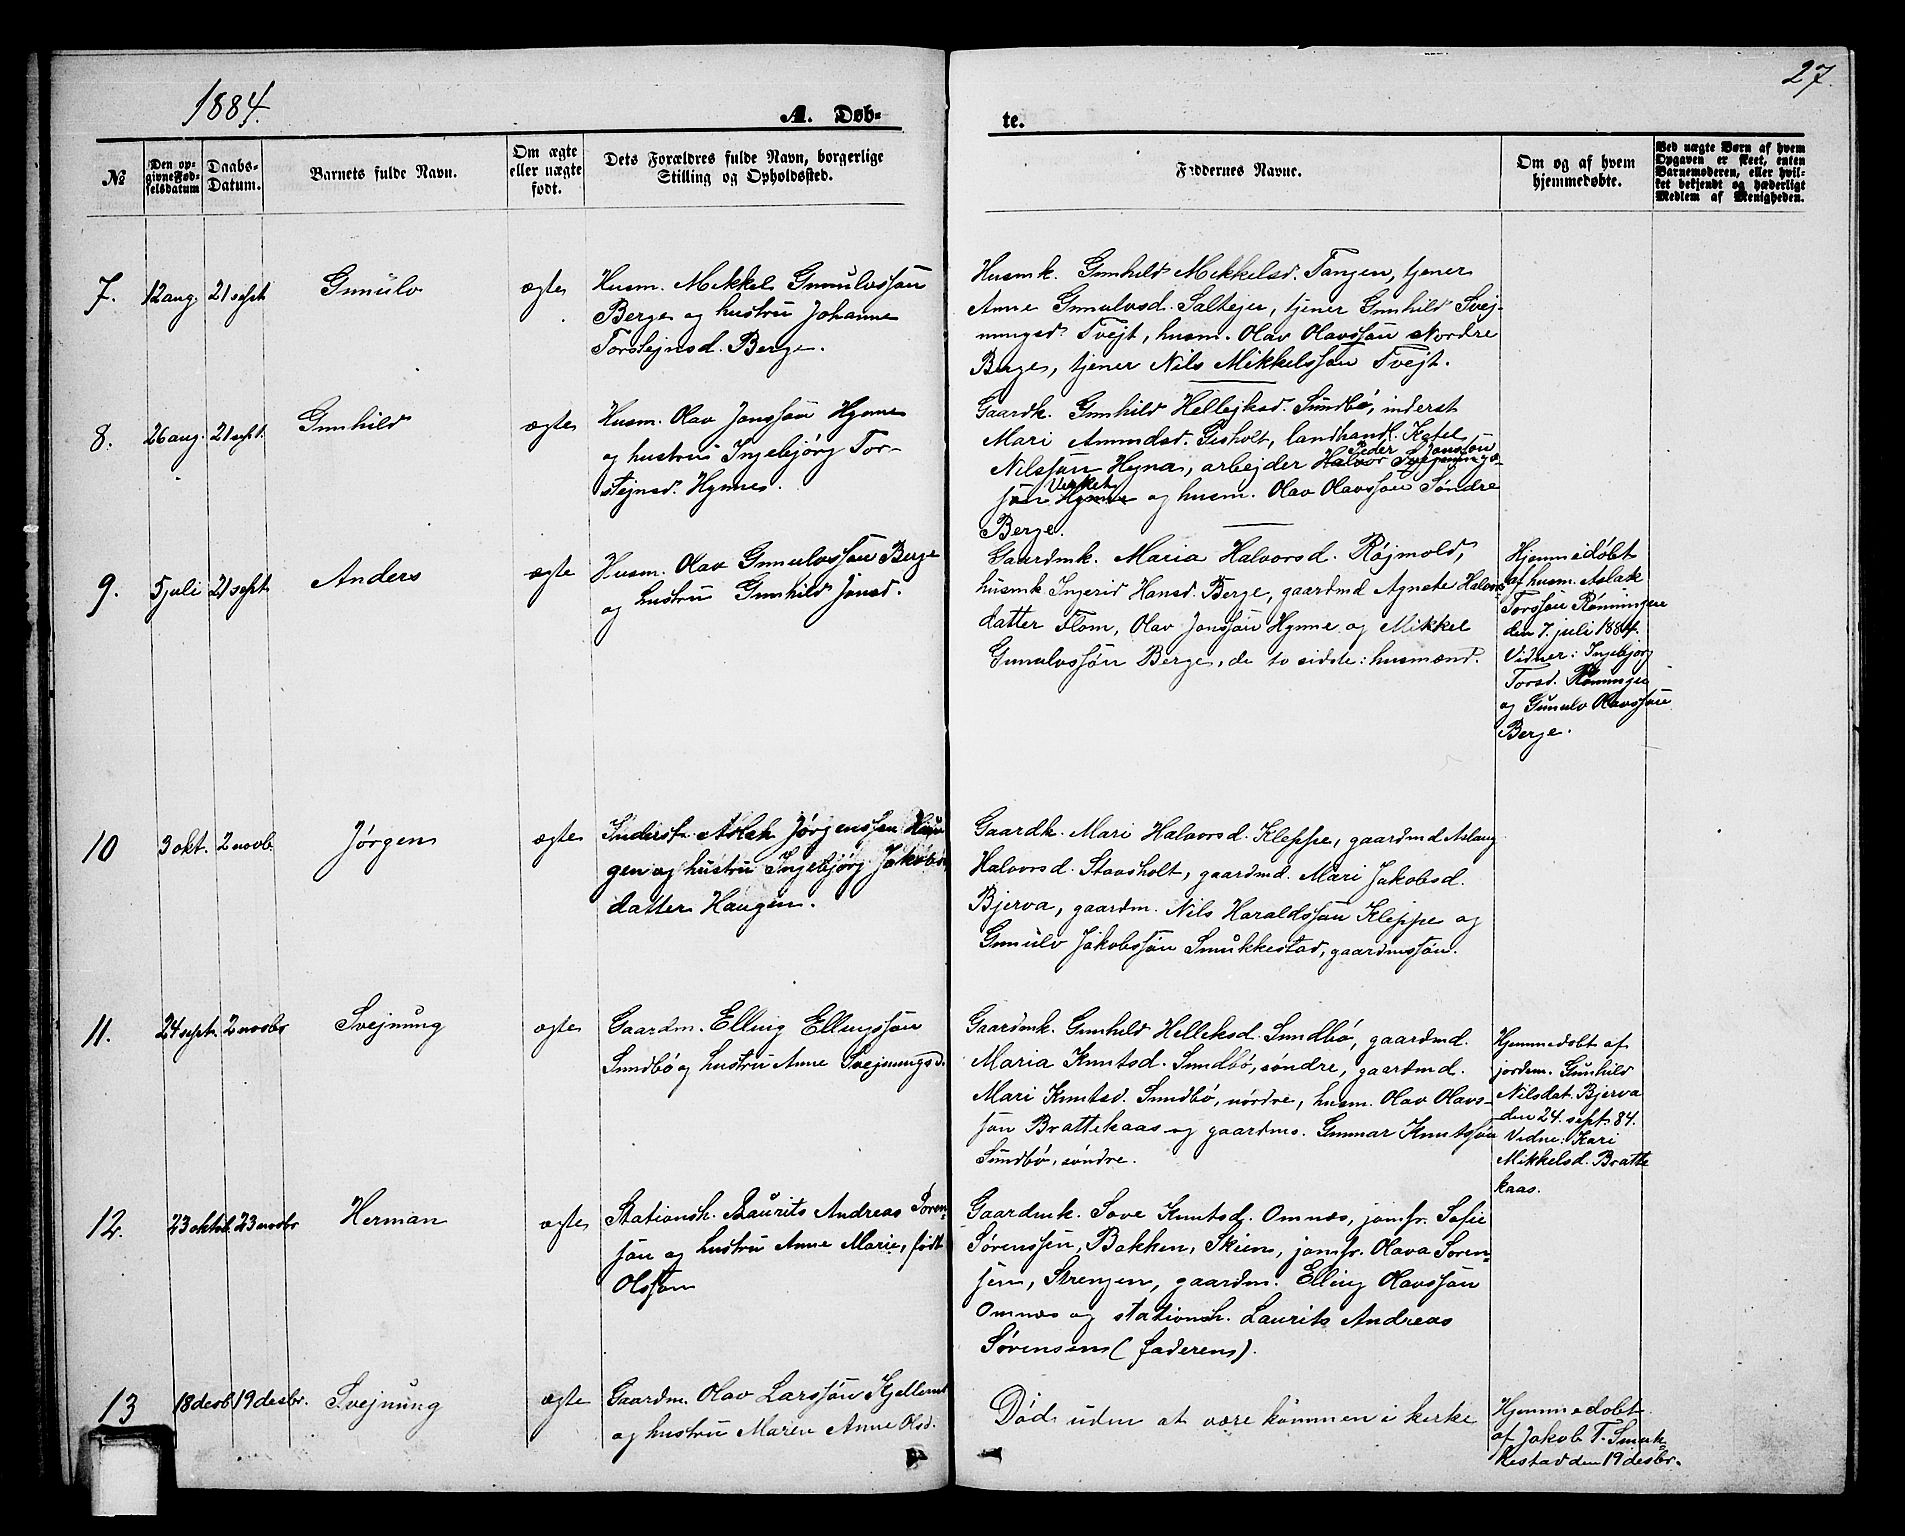 1884.
27.
A. Døb-
te.
№
Den op-
givne Fød-
selsdatum
Daabs-
Datum.
Barnets fulde Navn.
Om ægte
eller uægte
født.
Dets Forældres fulde Navn, borgerlige
Stilling og Opholdssted.
Faddernes Navne.
Om og af hvem
hjemmedøbte.
Ved uægte Børn af hvem
Opgaven er skeet, enten
Barnemoderen, eller hvil-
ket bekjendt og hæderligt
Medlem af Menigheden.
7.
12 aug.
21 sept
Gunulv
ægte
Husm. Mikkel Gunulvssøn
Berge og hustru Johanne
Torstejnsd. Berge.
Husmk. Gunhild Mikkelsd. Tangen, tjener
Anne Gunulvsd. Saltejer, tjener Gunhild Svej-
nungsd. Tvejt, husm. Olav Olavssøn Nordre
Berge, tjener Nils Mikkelssøn Tvejt.
8.
26 aug.
21 sept.
Gunhild
ægte
Husm. Olav Jonssøn Hynne
og hustru Ingebjørg Tor-
stejnsd. Hynne.
Gaardk. Gunhild Hellejksd. Sundbø, inderst
Mari Amundsd. Gisholt, landhandl. Ketel
Peder Jonssøn
Nilssøn Hyna, arbejder Halvor Svejnungs-
Verket
søn Hynne og husm. Olav Olavssøn Søndre
Berge.
9.
5 juli
21 sept
Anders
ægte
Husm. Olav Gunulvssøn Berge
og hustru Gunhild Jonsd.
Gaardmk. Maria Halvorsd. Røjmold,
husmk Ingerid Hansd. Berge, gaardmd Agnete Halvors
datter Flom, Olav Jonssøn Hynne og Mikkel
Gunulvssøn Berge, de to sidste: husmænd.
Hjemmedøbt
af husm. Aslak
Torssøn Rønningen
den 7. juli 1884.
Vidner: Ingebjørg
Torsd. Rønningen
og Gunulv Olavssøn
Berge.
10
3 okt.
2 novb.
Jørgen
ægte
Inderst Aslak Jørgenssen Hau-
gen og hustru Ingebjørg Jakobs-
datter Haugen.
Gaardk. Mari Halvorsd. Kleppe, gaardmd Aslaug
Halvorsd. Stavsholt, gaardmd. Mari Jakobsd.
Bjerva, gaardm. Nils Haraldssøn Kleppe og
Gunulv Jakobssøn Smukkestad, gaardmssøn.
11.
24 sept.
2 novbr
Svejnung
ægte
Gaardm. Elling Ellingssøn
Sundbø og hustru Anne Svejnungsd.
Gaardmk. Gunhild Helleksd. Sundbø, gaardmd.
Maria Knutsd. Sundbø, søndre, gaardmd.
Mari Knutsd. Sundbø, nørdre, husm. Olav Olavs-
søn Brattekaas og gaardms. Gunnar Knutssøn
Sundbø, søndre.
Hjemmedøbt af
jordm. Gunhild
Nilsdat. Bjerva
den 24. sept. 84.
Vidne: Kari
Mikkelsd. Bratte
kaas.
12.
23 oktob.
23 novbr
Herman
ægte
Stationsh. Laurits Andreas Søren-
søn og hustru Anne Marie, født
Olssøn
Gaardmk. Sove Knutsd. Omnæs, jomfr. Sofie
Sørenssen, Bakken, Skien, jomfr. Olava Søren-
sen, Strengen, gaardm. Elling Olavssøn
Omnæs og stationsh. Laurits Andreas
Sørensen (faderen).
13
18 desb
19 desbr.
Svejnung
ægte
Gaardm. Olav Larssøn Kjellemt
og hustru Maren Anne Olsd.
Død uden at være kommen i kirke
Hjemmedøbt
af Jakob T. Smuk-
kestad den 19 desbr.